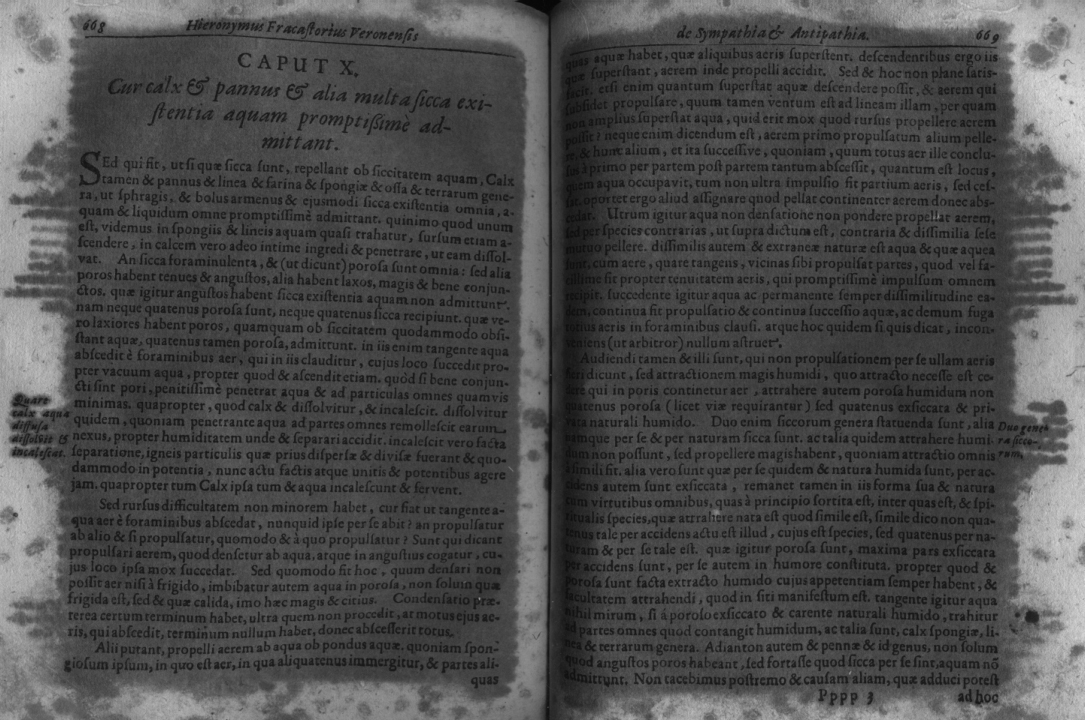 668 Hieronymus Fracastorius Veronensis
CAPUT X.
Cur calx & pannus & alia multa sicca exi-
stentia aquam promptissimè ad-
mittant.
SEd qui fit, ut si quæ sicca sunt, repellant ob siccitatem aquam, Calx
tamen & pannus & linea & farina & spongiæ & ossa & terrarum gene-
ra, ut sphragis, & bolus armenus & ejusmodi sicca existentia omnia, a-
quam & liquidum omne promptissimè admittant. quinimo quod unum
est, videmus in spongiis & lineis aquam quasi trahatur, sursum etiam a-
scendere, in calcem vero adeo intime ingredi & penetrare, ut eam dissol-
vat. An sicca foraminulenta, & (ut dicunt) porosa sunt omnia: sed alia
poros habent tenues & angustos, alia habent laxos, magis & bene conjun-
ctos. quæ igitur angustos habent sicca existentia aquam non admittunt.
nam neque quatenus porosa sunt, neque quatenus sicca recipiunt. quæ ve-
ro laxiores habent poros, quamquam ob siccitatem quodammodo obsi-
stant aquæ, quatenus tamen porosa, admittunt. in iis enim tangente aqua
abscedit è foraminibus aer, qui in iis clauditur, cujus loco succedit pro-
pter vacuum aqua, propter quod & ascendit etiam. quòd si bene conjun-
cti sint pori, penitissimè penetrat aqua & ad particulas omnes quamvis
minimas. quapropter, quod calx & dissolvitur, & incalescit. dissolvitur
quidem, quoniam penetrante aqua ad partes omnes remollescit earum
nexus, propter humiditatem unde & separari accidit. incalescit vero facta
separatione, igneis particulis quæ prius dispersæ & divisæ fuerant & quo-
dammodo in potentia, nunc actu factis atque unitis & potentibus agere
jam. quapropter tum Calx ipsa tum & aqua incalescunt & fervent.
Quare
calx aqua
diffusa
dissolvit &
incalescat.
Sed rursus difficultatem non minorem habet, cur fiat ut tangente a-
qua aer è foraminibus abscedat, nunquid ipse per se abit? an propulsatur
ab alio & si propulsatur, quomodo & à quo propulsatur? Sunt qui dicant
propulsari aerem, quod densetur ab aqua. atque in angustius cogatur, cu-
jus loco ipsa mox succedat. Sed quomodo fit hoc, quum densari non
possit aer nisi à frigido, imbibatur autem aqua in porosa, non solum quæ
frigida est, sed & quæ calida, imo hæc magis & citius. Condensatio præ-
terea certum terminum habet, ultra quem non procedit, at motus ejus ae-
ris, qui abscedit, terminum nullum habet, donec abscesserit totus.
Alii putant, propelli aerem ab aqua ob pondus aquæ. quoniam spon-
giosum ipsum, in quo est aer, in qua aliquatenus immergitur, & partes ali-
quas
de Sympathia & Antipathia. 669
quas aquæ habet, quæ aliquibus aeris superstent. descendentibus ergo iis
quæ superstant, aerem inde propelli accidit. Sed & hoc non plane satis-
fecit. etsi enim quantum superstat aquæ descendere possit, & aerem qui
subsidet propulsare, quum tamen ventum est ad lineam illam, per quam
non amplius superstat aqua, quid erit mox quod rursus propellere aerem
possit? neque enim dicendum est, aerem primo propulsatum alium pelle-
re, & hunc alium, et ita successive, quoniam, quum totus aer ille conclu-
sus à primo per partem post partem tantum abscessit, quantum est locus,
quem aqua occupavit, tum non ultra impulsio fit partium aeris, sed ces-
sit. oportet ergo aliud assignare quod pellat continenter aerem donec abs-
cedat. Utrum igitur aqua non densatione non pondere propellat aerem,
sed per species contrarias, ut supra dictum est, contraria & dissimilia sese
mutuo pellere. dissimilis autem & extraneæ naturæ est aqua & quæ aquea
sunt, cum aere, quare tangens, vicinas sibi propulsat partes, quod vel fa-
cillime fit propter tenuitatem aeris, qui promptissimè impulsum omnem
recipit. succedente igitur aqua ac permanente semper dissimilitudine ea-
dem, continua fit propulsatio & continua successio aquæ, ac demum fuga
totius aeris in foraminibus clausi. atque hoc quidem si quis dicat, incon-
veniens (ut arbitror) nullum astruet.
Audiendi tamen & illi sunt, qui non propulsationem per se ullam aeris
fieri dicunt, sed attractionem magis humidi, quo attracto necesse est ce-
dere qui in poris continetur aer, attrahere autem porosa humidum non
quatenus porosa (licet viæ requirantur) sed quatenus exsiccata & pri-
vata naturali humido. Duo enim siccorum genera statuenda sunt, alia
namque per se & per naturam sicca sunt. ac talia quidem attrahere humi-
dum non possunt, sed propellere magis habent, quoniam attractio omnis
à simili fit. alia vero sunt quæ per se quidem & natura humida sunt, per ac-
cidens autem sunt exsiccata, remanet tamen in iis forma sua & natura
cum virtutibus omnibus, quas à principio sortita est, inter quas est, & spi-
ritualis species, quæ attrahere nata est quod simile est, simile dico non qua-
tenus tale per accidens actu est illud, cujus est species, sed quatenus per na-
turam & per se tale est. quæ igitur porosa sunt, maxima pars exsiccata
per accidens sunt, per se autem in humore constituta. propter quod &
porosa sunt facta extracto humido cujus appetentiam semper habent, &
facultatem attrahendi, quod in siti manifestum est. tangente igitur aqua
nihil mirum, si à poroso exsiccato & carente naturali humido, trahitur
ad partes omnes quod contangit humidum, ac talia sunt, calx spongiæ, li-
nea & terrarum genera. Adianton autem & pennæ & id genus, non solum
quod angustos poros habeant, sed fortasse quod sicca per se sint, aquam nō
admittunt. Non tacebimus postremo & causam aliam, quæ adduci potest
Duo gene-
ra sicco-
rum.
Pppp 3 ad hoc